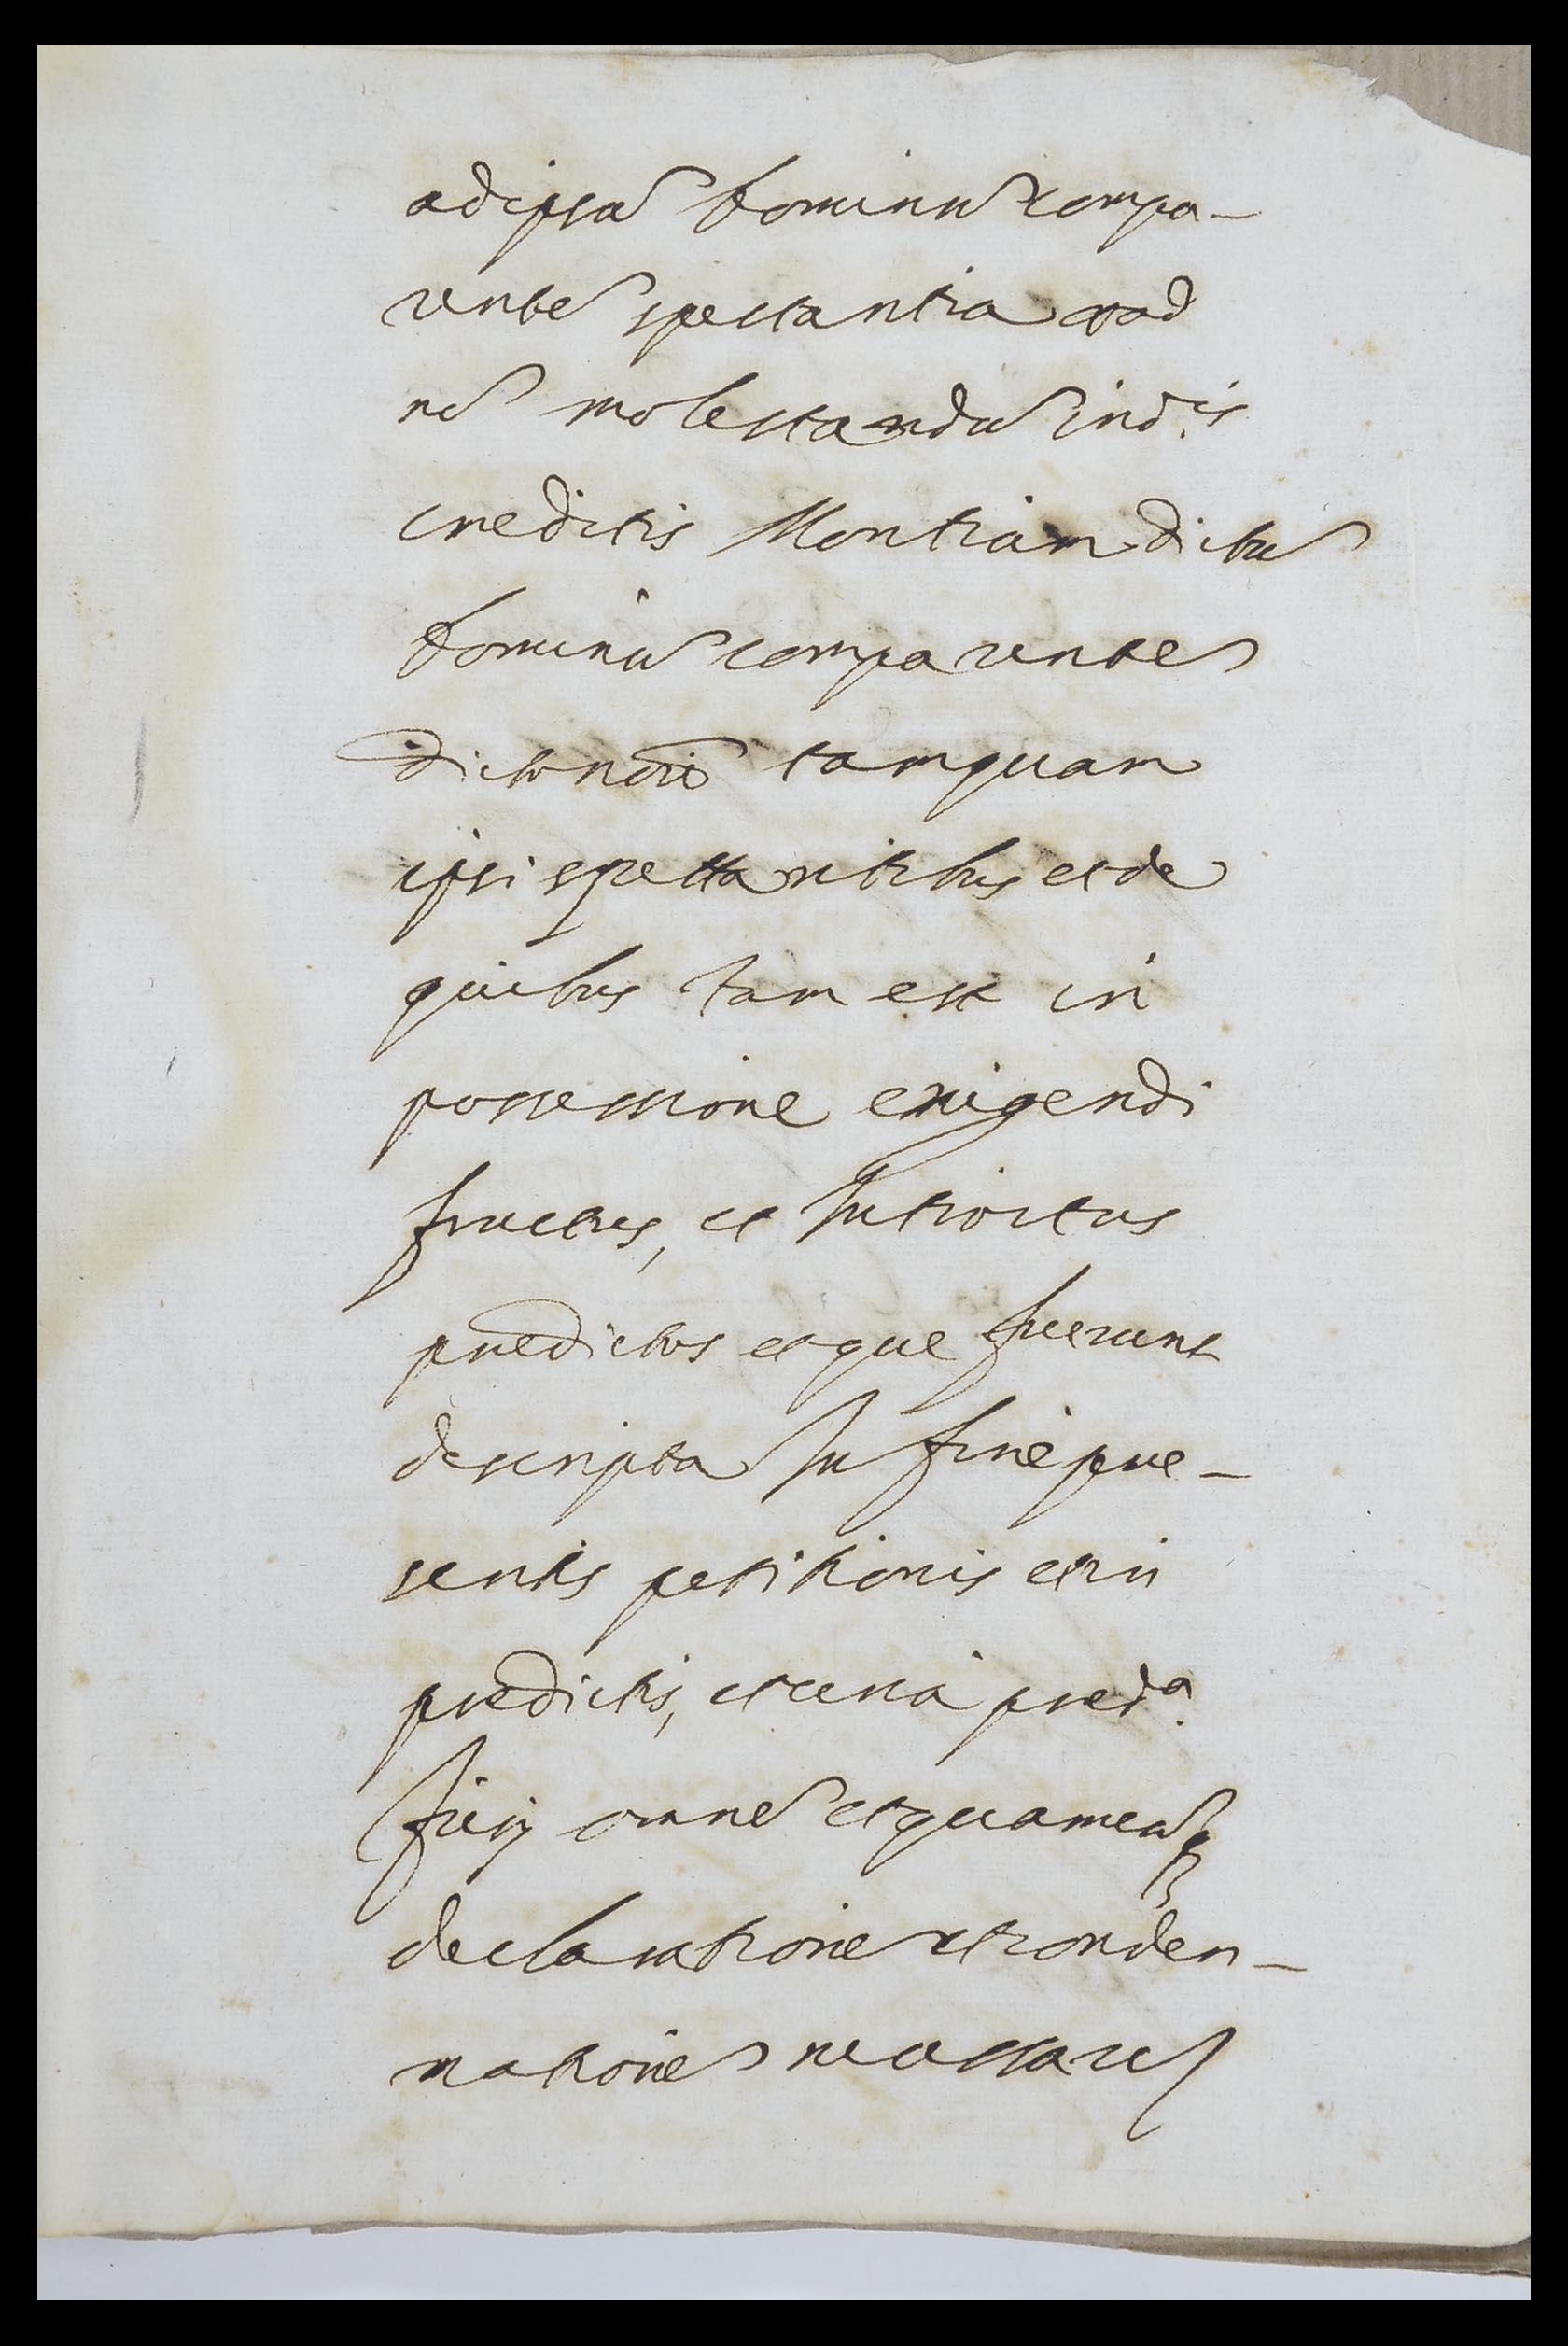 ad ipsū dominū compa-
rente spectantia et ad
nō molestandū in d.is
creditis Montium dictū
dominū comparentē
dicto noīe tamquam
ipsi spectantibus et de
quibus iam est in
possessione exigendi
fructus, et Introitus
predictos et que fuerunt
descripta In fine pre-
sentis petitionis et in
predictis, et circa pred.a
fieri omnē et quamcūq;
declarationē et conden-
nationē necessariā